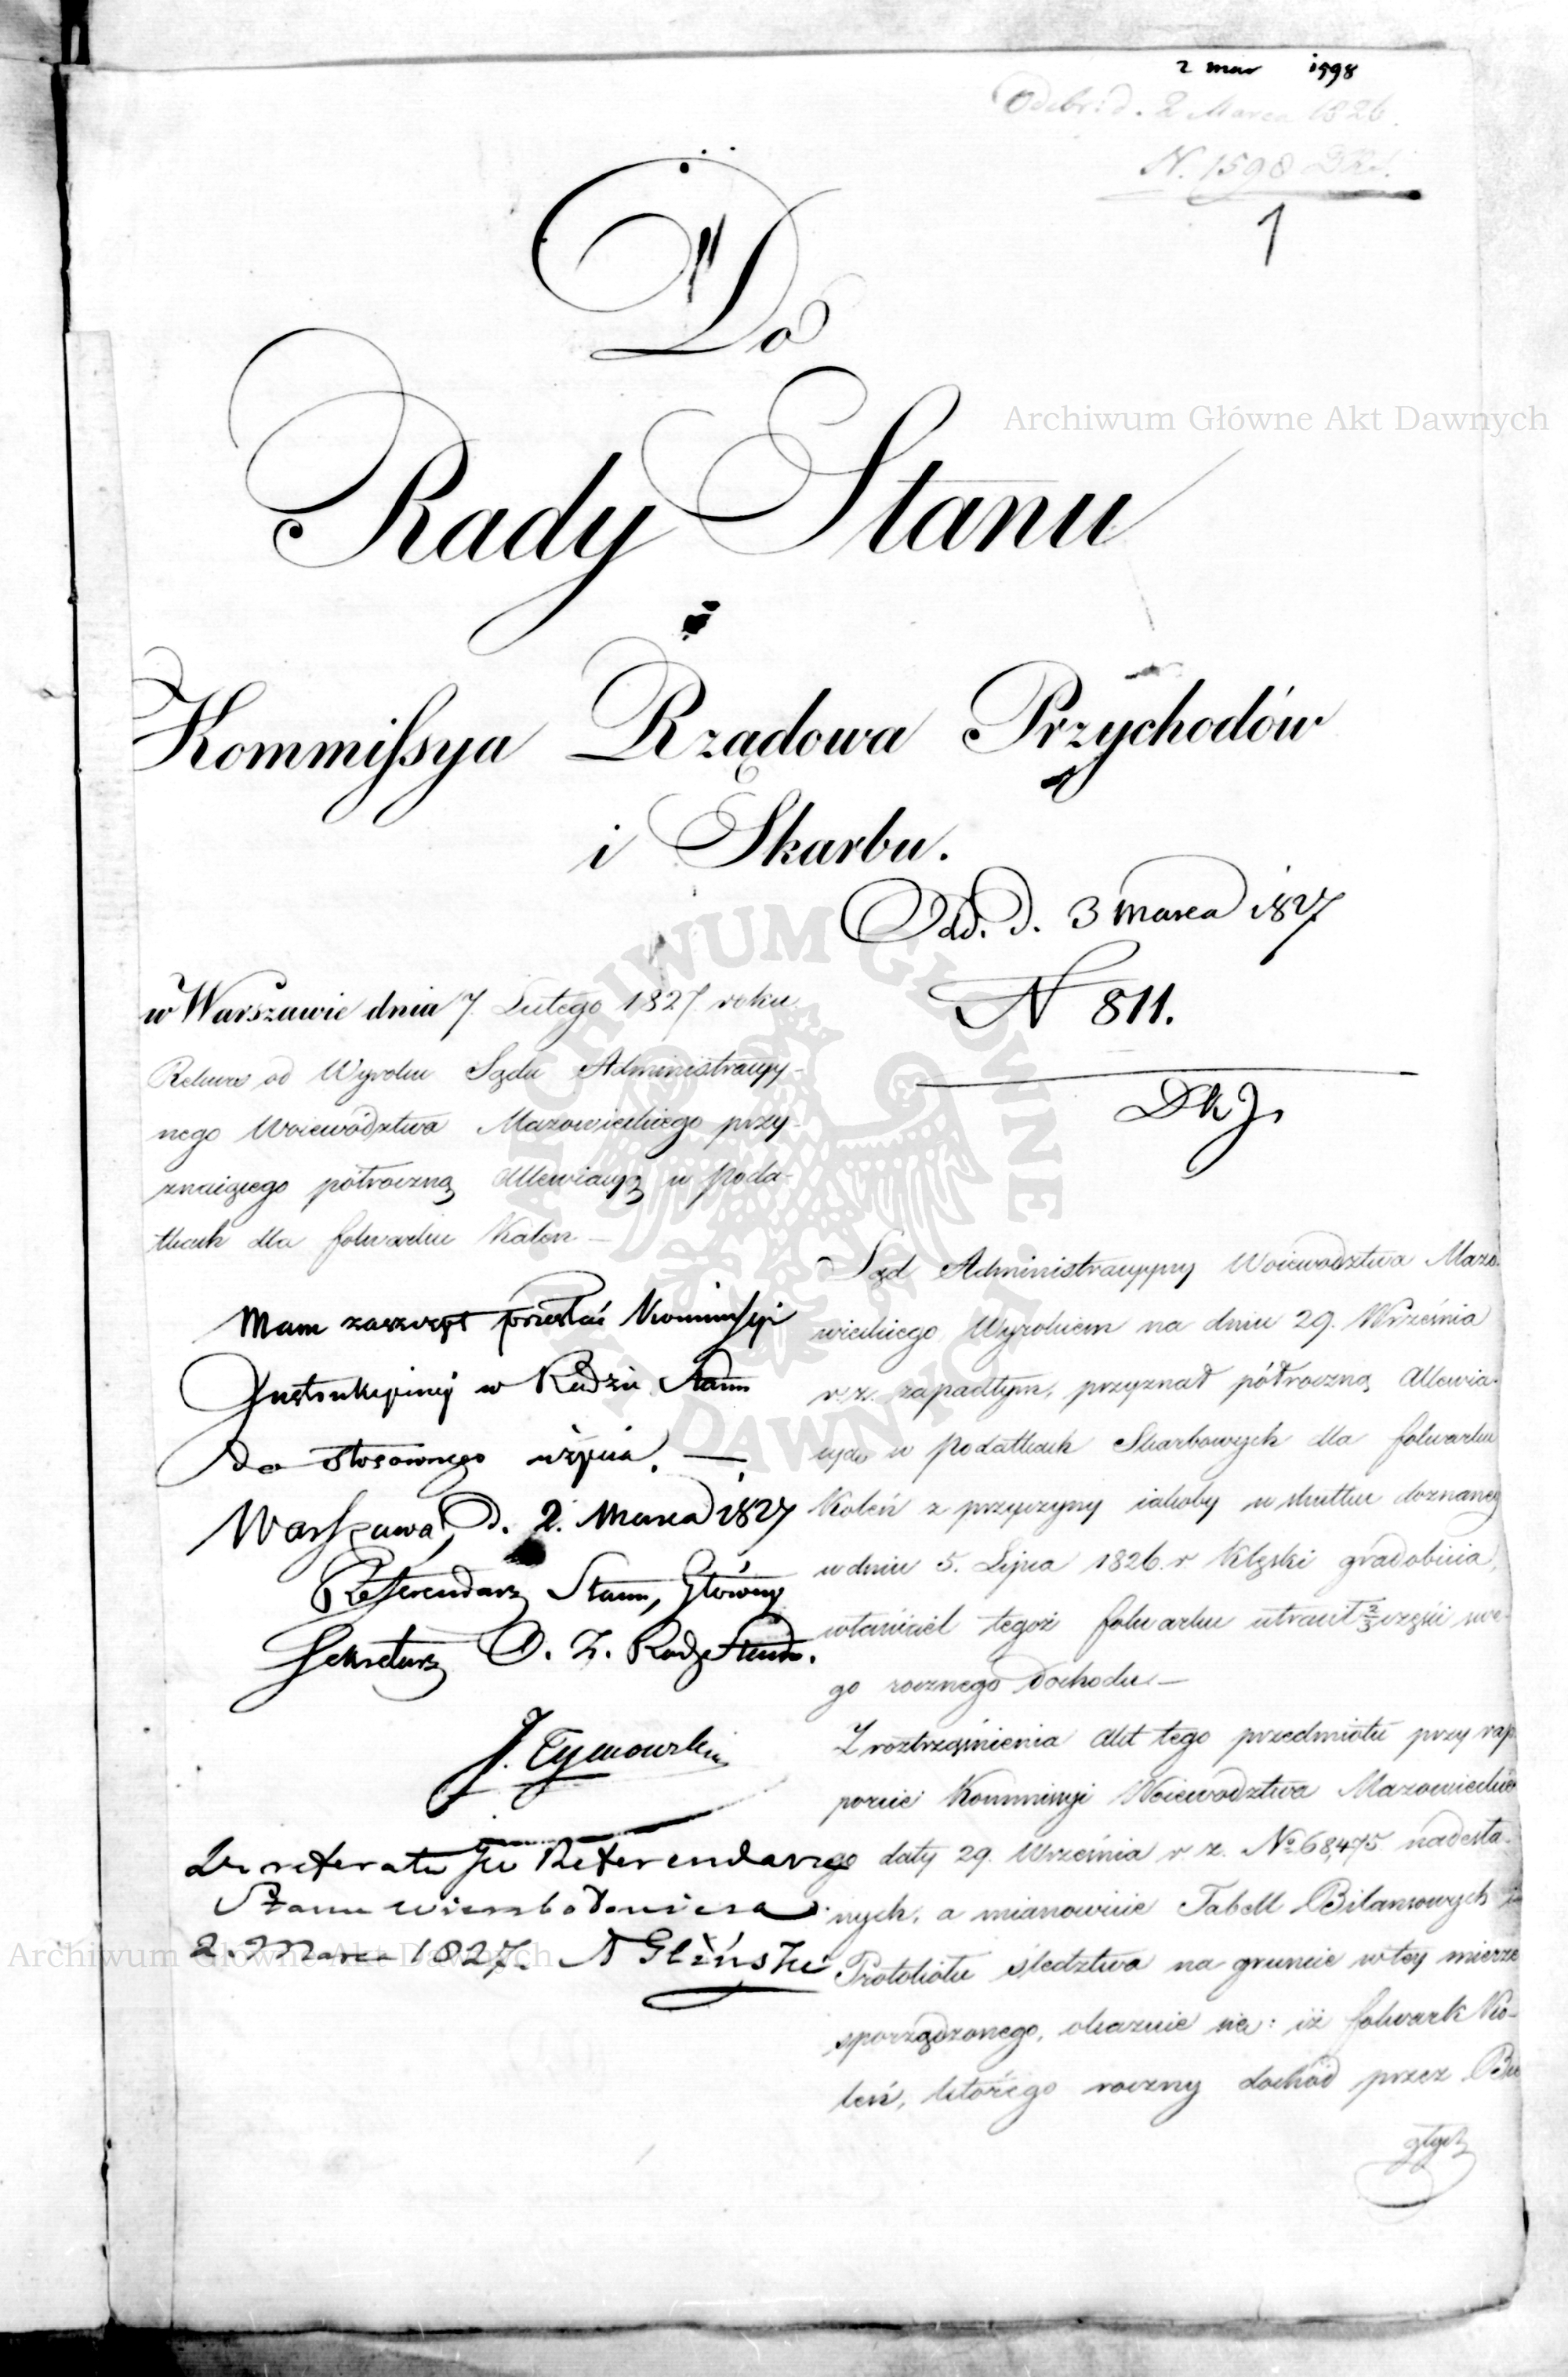 2 mar 1598
Odebr: d. 2 Marca 1826.
N. 1598 DKJ.
1
Do
Rady Stanu
Kommissya Rządowa Przychodów
i Skarbu.
Odd. d. 3 marca 1827
N 811.
DKJ.
w Warszawie dnia 7. Lutego 1827 roku
Rekurs od Wyroku Sądu Administracyy-
nego Woiewództwa Mazowieckiego przy-
znaiącego półroczną Allewiacyą w poda-
tkach dla folwarku Koleń —
Mam zaszczyt przesłać Kommissyi
Instrukcyiney w Radzie Stanu
do stosownego użycia. —
Warszawa, d. 2. Marca 1827
Referendarz Stanu, Główny
Sekretarz
J. Tymowski
Do referatu JW Referendarza
Stanu
2. Marca 1827. Gliński
Sąd Administracyyny Woiewództwa Mazo-
wieckiego Wyrokiem na dniu 29. Września
r. z. zapadłym, przyznał półroczną Allewia-
cyą w podatkach Skarbowych dla folwarku
Koleń z przyczyny iakoby w skutku doznaney
w dniu 5. Lipca 1826. r. Klęski gradobicia,
właściciel tegoż folwarku utracił 2/3 części swe-
go rocznego dochodu —
Z roztrząśnienia Akt tego przedmiotu przy rap-
porcie Kommissyi Woiewództwa Mazowieckie
go daty 29. Września r. z. No 68,475 nadesła-
nych, a mianowicie Tabell Bilansowych i
Protokółu śledztwa na gruncie w tey mierze
sporządzonego, okazuie się: iż folwark Ko-
leń, którego roczny dochód przez Bie
głych
Archiwum Główne Akt Dawnych
Archiwum Główne Akt Dawnych
ARCHIWUM GŁÓWNE AKT DAWNYCH